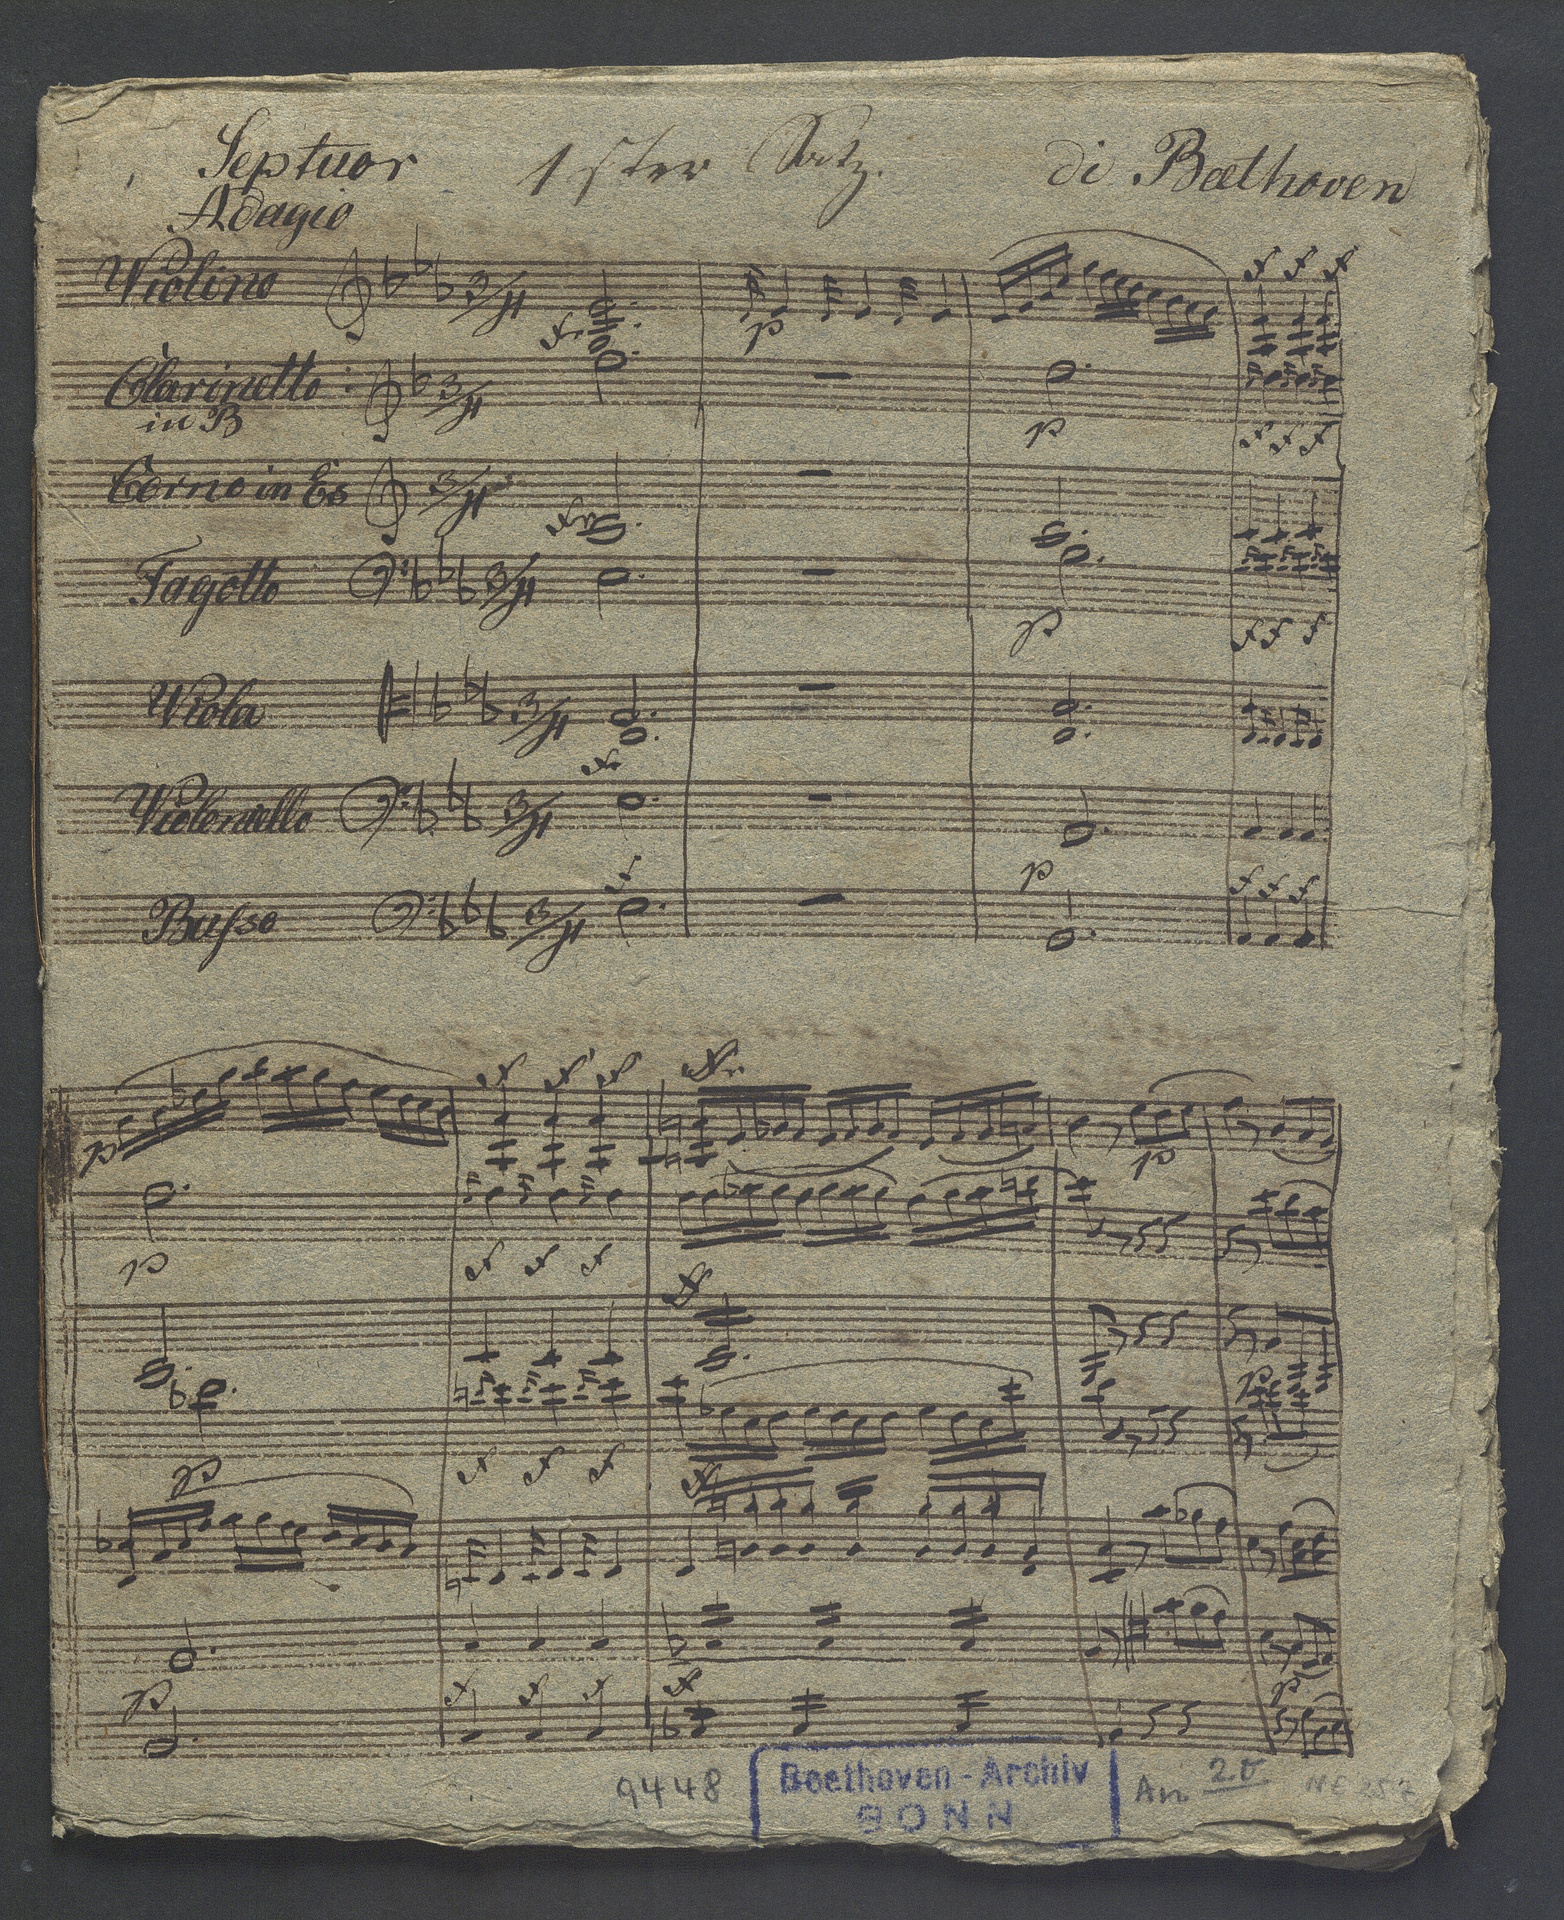 Septuor 1ster Satz. di Beethoven
Adagio
Violino
Clarinetto
in B
Corno in Es
Fagotto
Viola
Violoncello
Basso
9448
Beethoven-Archiv
BONN